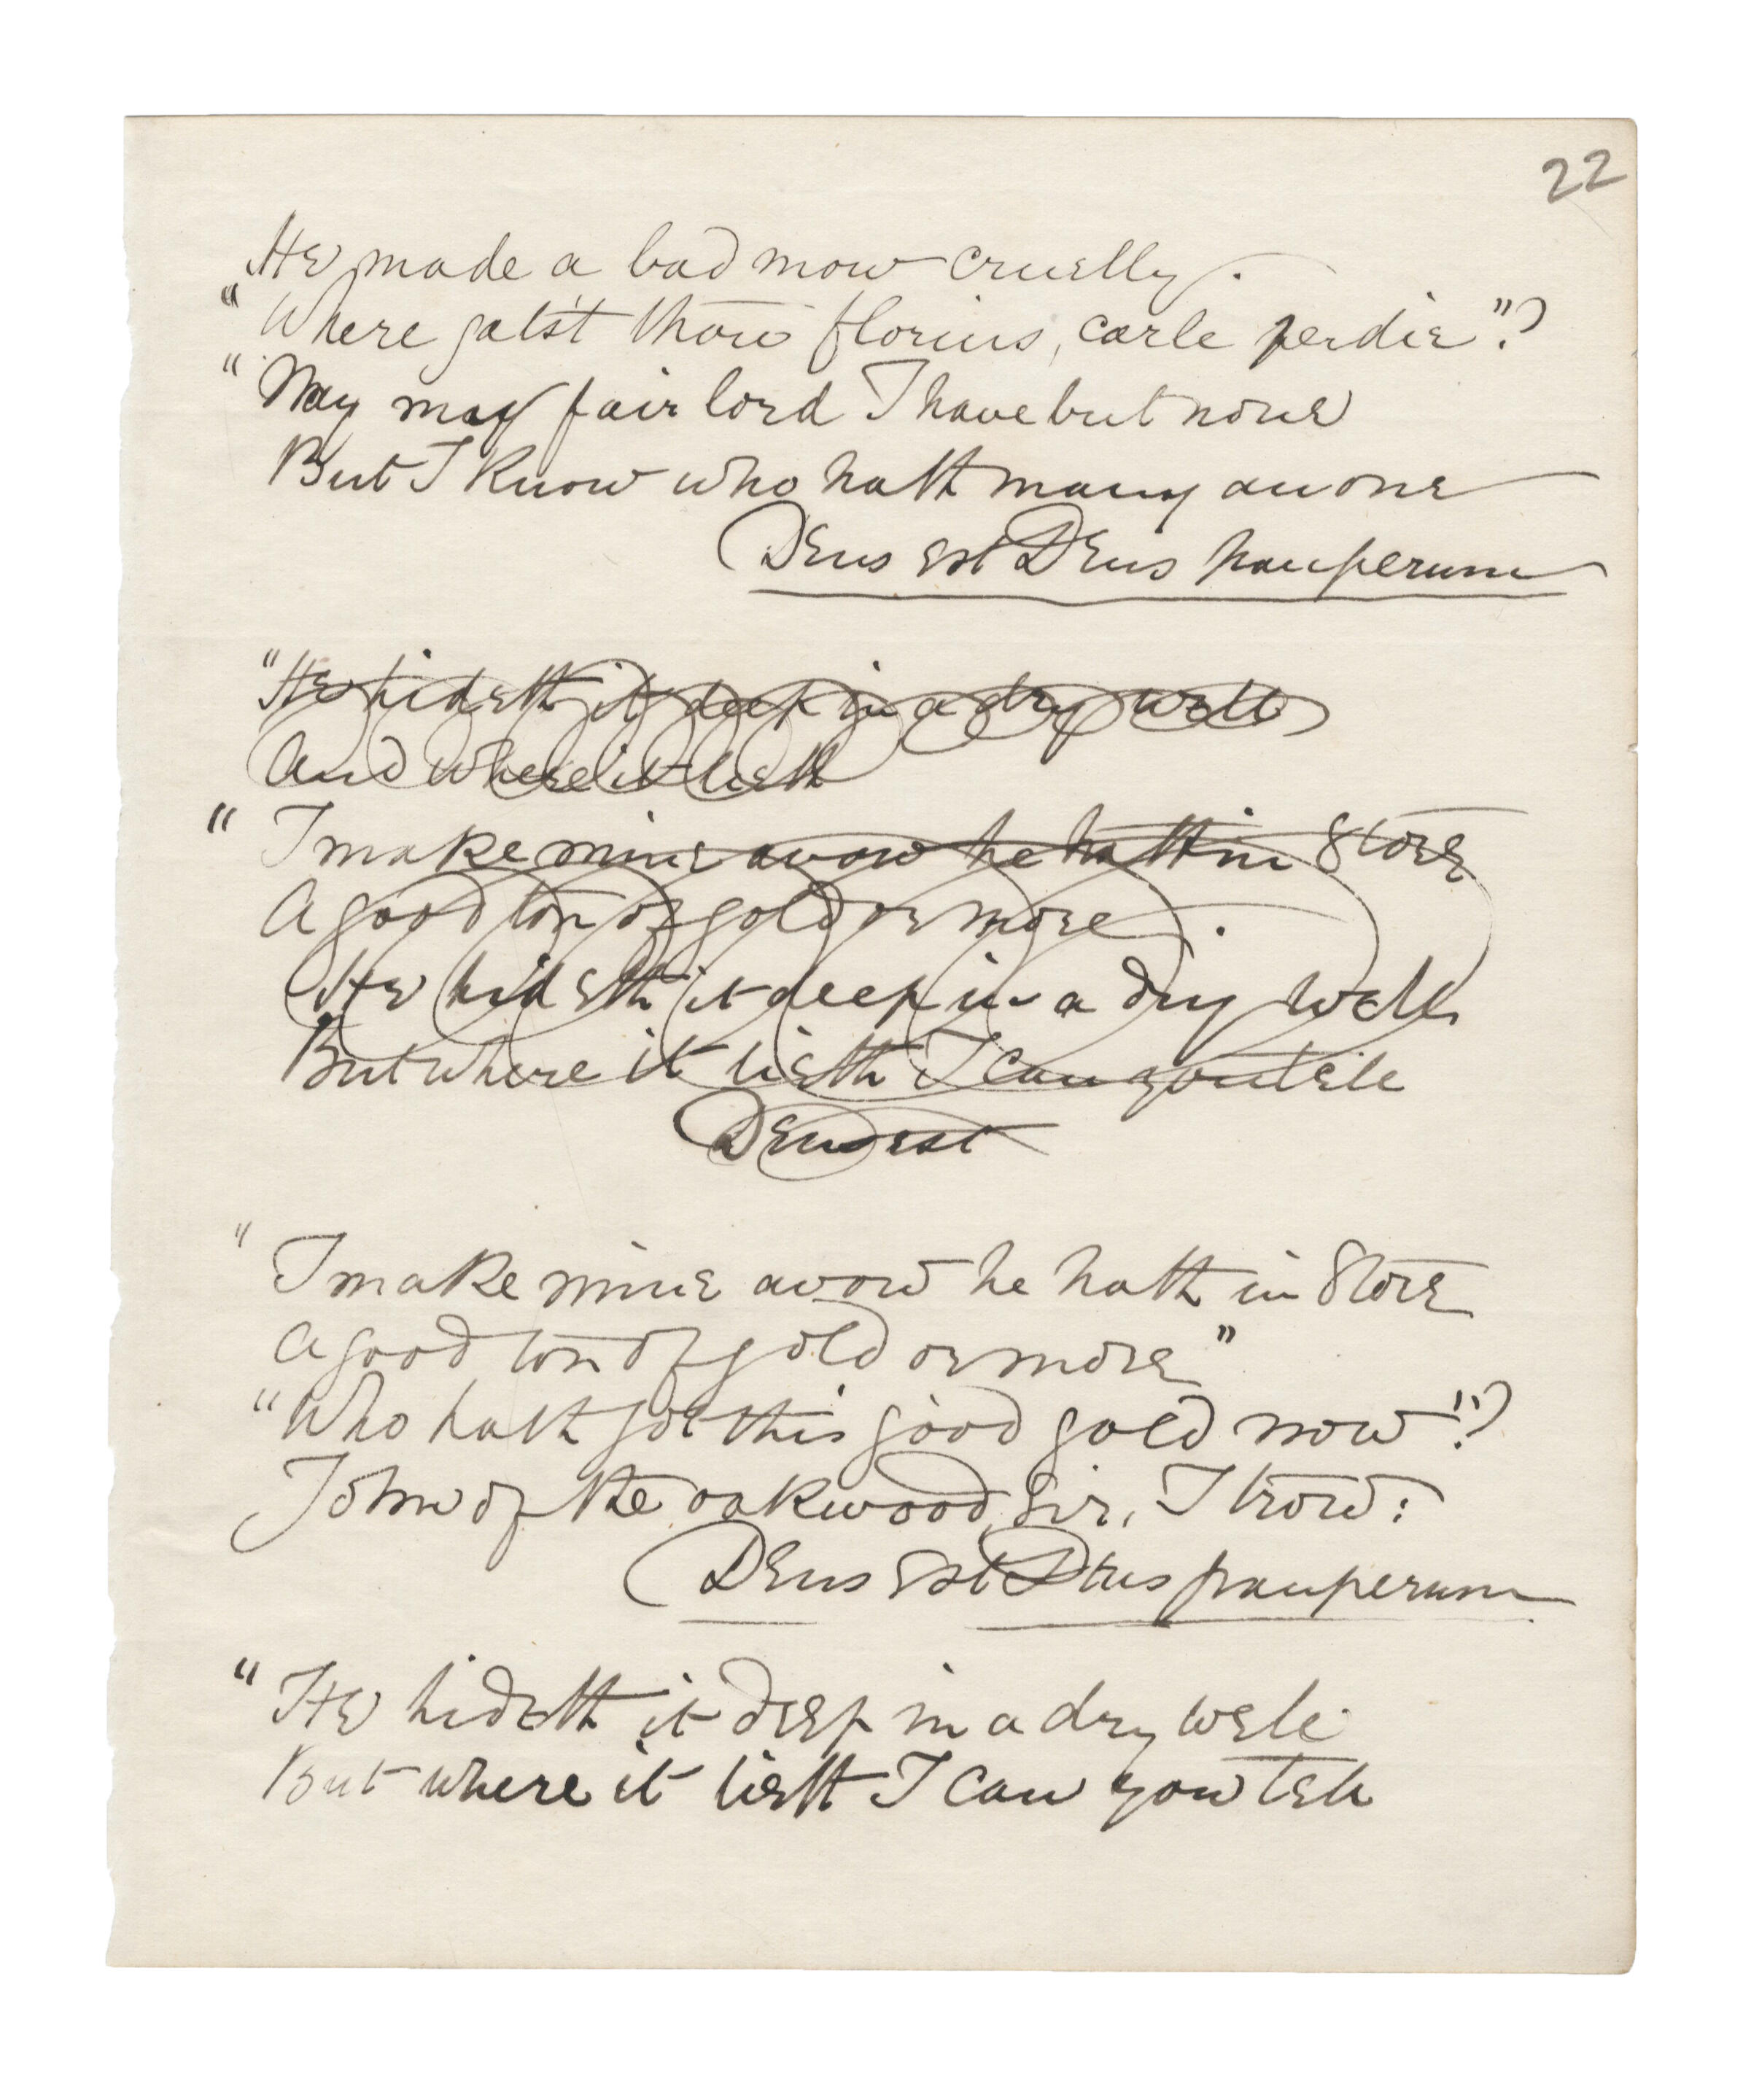 22
He made a bad mow cruelly.
"Where gat'st thou florins, carle perdie"?
"Nay may fair lord I have but none
But I know who hath many an one
Deus est Deus pauperum
"He hideth it deep in a dry well
And where it lieth
"I make mine avow he hath in store
A good ton of gold or more.
He hideth it deep in a dry well
But where it lieth I can you tell
Deus est
"I make mine avow he hath in store
A good ton of gold or more"
"Who hath got this good gold now"?
John of the oakwood, Sir, I trow:
Deus est Deus pauperum
"He hideth it deep in a dry well
But where it lieth I can you tell